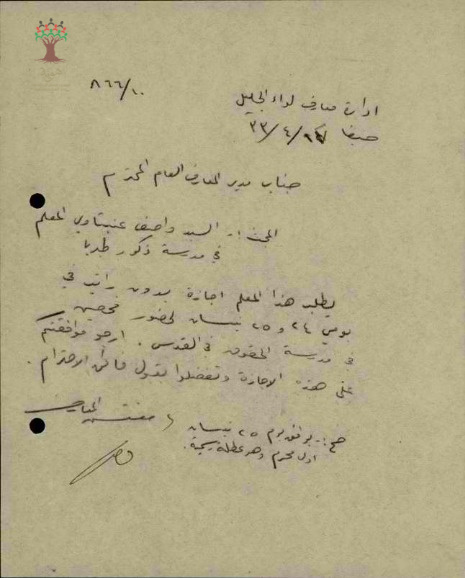 ٨٦٦/١٠
ادارة معارف لواء الجليل
حيفا ٣٣/٤/
جناب مدير المعارف العام المحترم
البحث :- السيد واصف عنبتاوي المعلم
في مدرسة ذكور طبريا
يطلب هذا المعلم اجازة بدون راتب في
يومي ٢٤ و ٢٥ نيسان لحضور فحصين
في مدرسة الحقوق في القدس . ارجو موافقتكم
على هذه الاجازة وتفضلوا بقبول فائق الاحترام .
مفتش المعارف
يوافق يوم ٢٥ نيسان
اول محرم وهو عطلة رسمية .